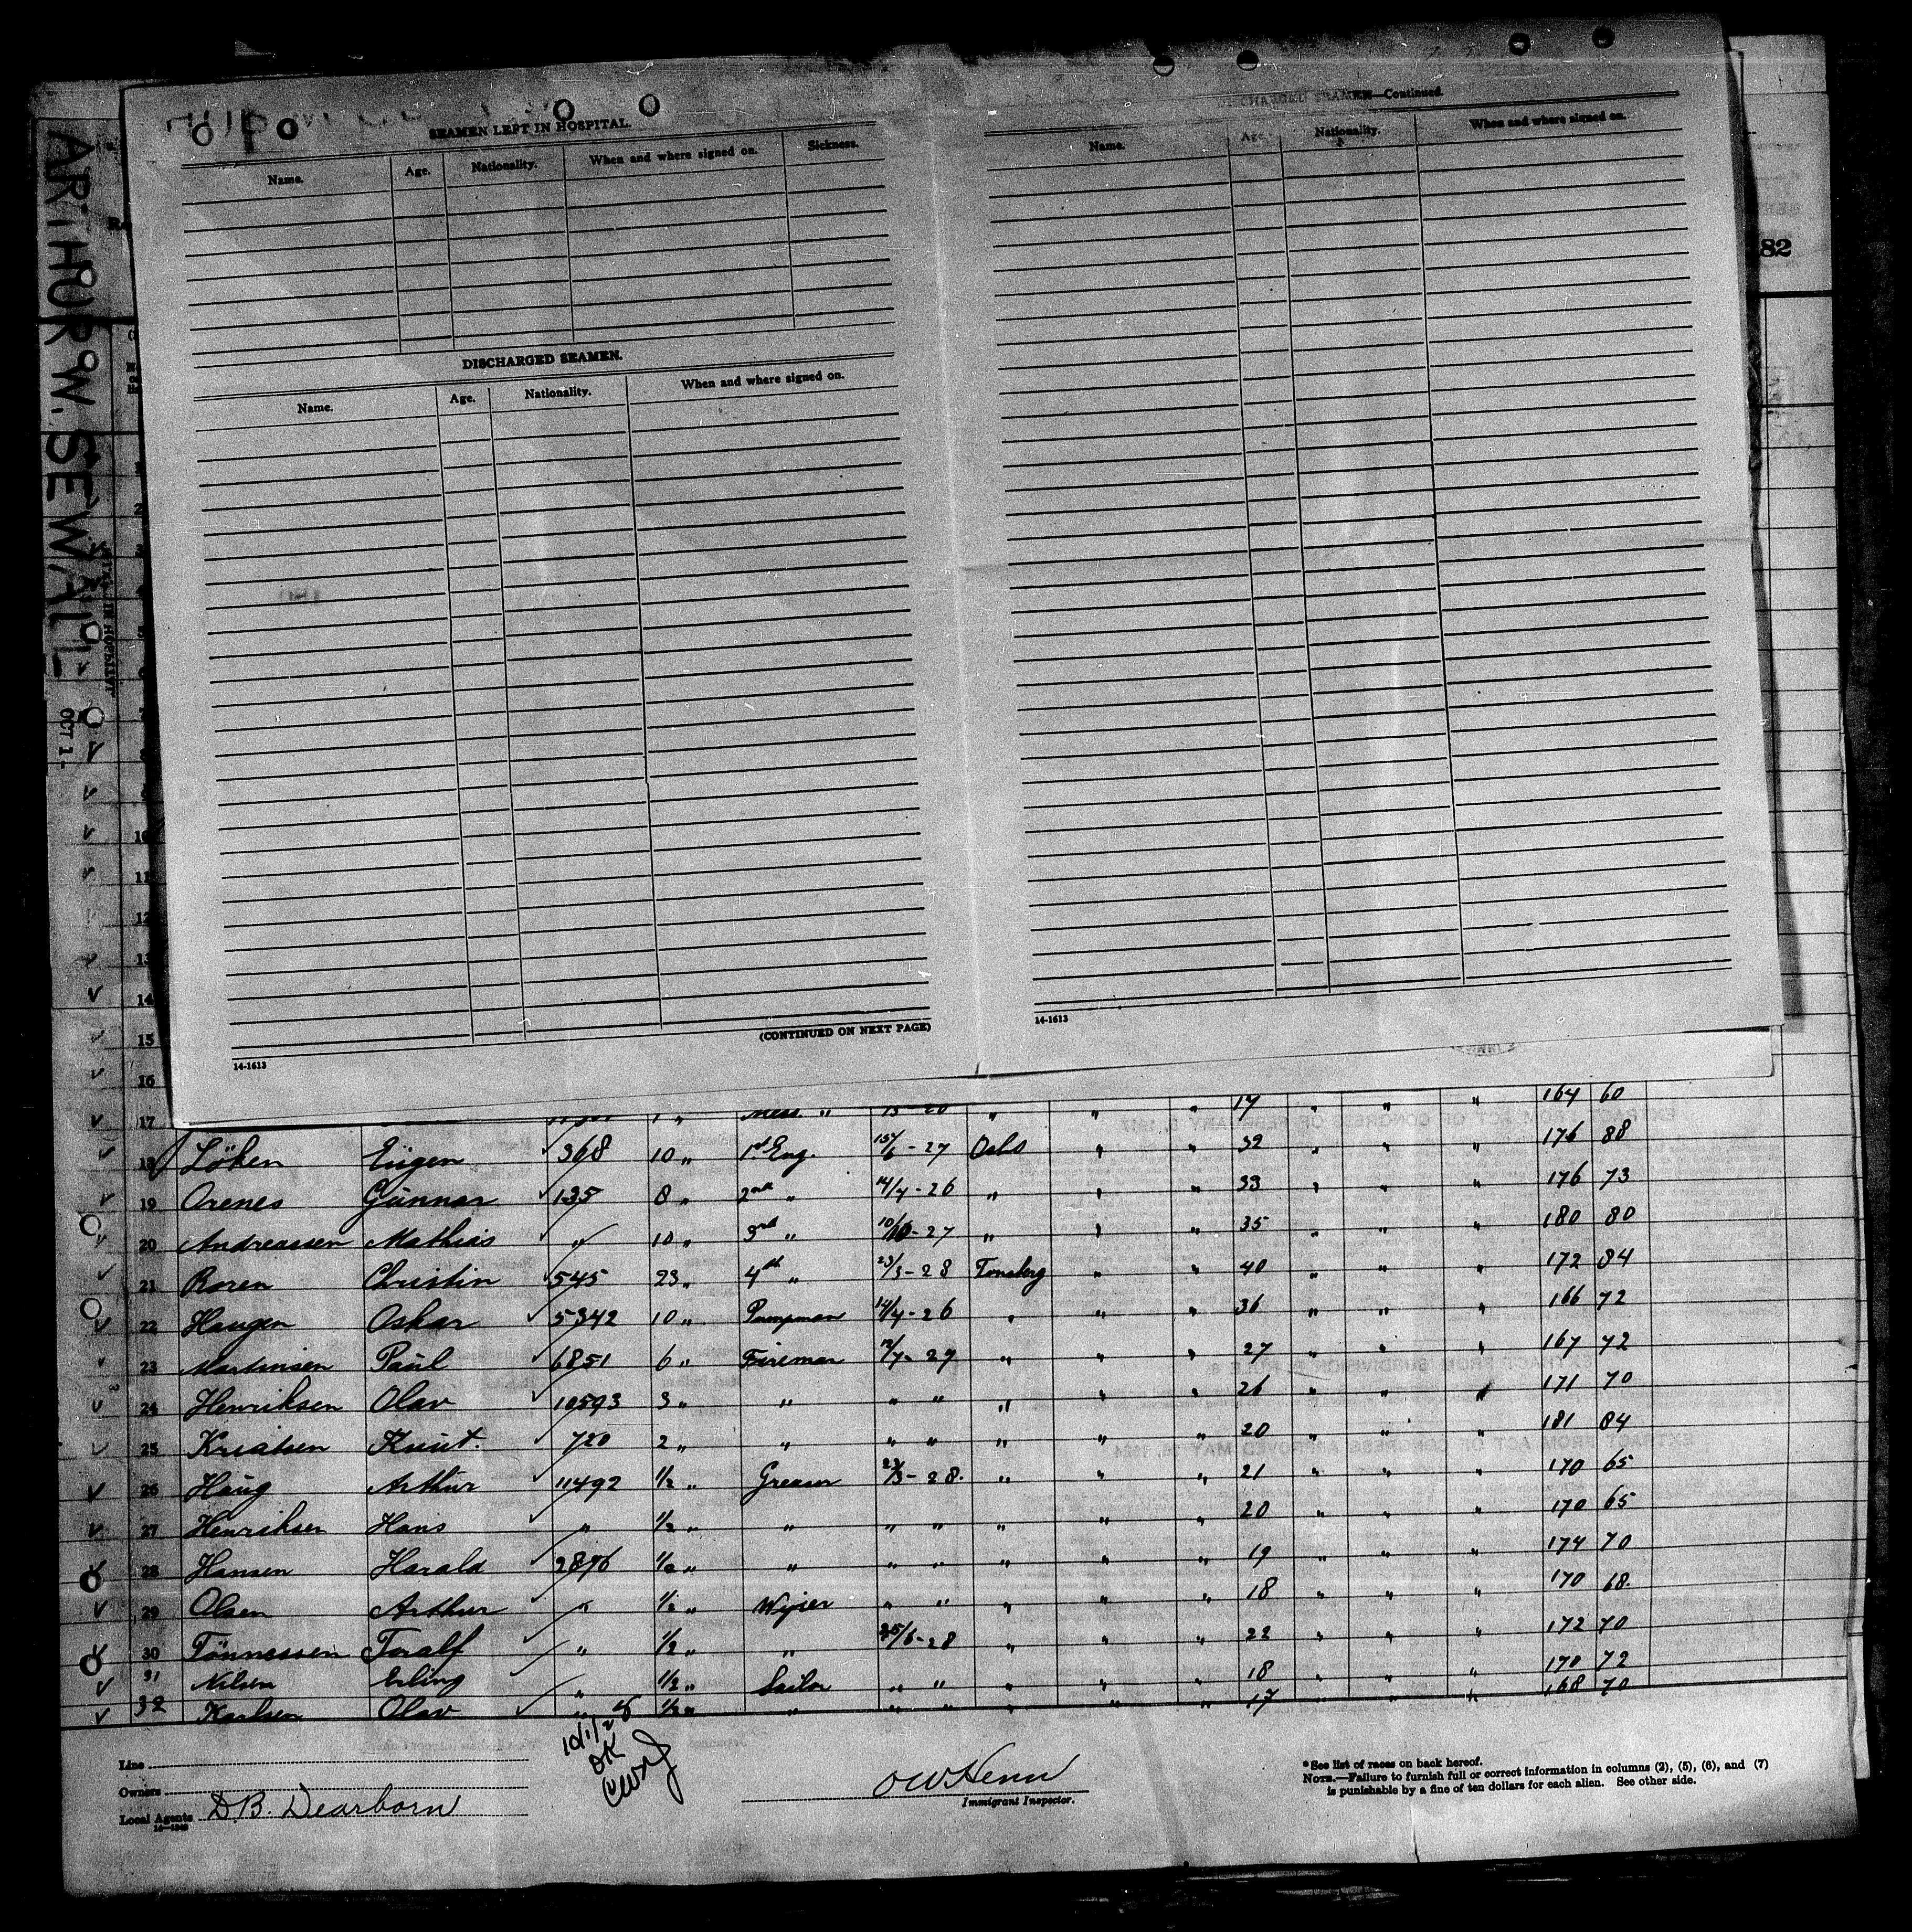 ARTHUR W. SEWALL
OCT 1 -
82
SEAMEN LEFT IN HOSPITAL.
Name. Age. Nationality. When and where signed on. Sickness.
DISCHARGED SEAMEN.
Name. Age. Nationality. When and where signed on.
(CONTINUED ON NEXT PAGE)
14-1613
DISCHARGED SEAMEN—Continued.
Name. Age. Nationality. When and where signed on.
14-1613
10
11
12
13
14
15
16
17 Mess. " " " " 17 " " " 164 60
18 Löken Eugen 368 10 " 1st Eng. 15/6 - 27 Oslo " " 32 " " " 176 88
19 Orenes Gunnar 135 8 " 2nd " 14/4 - 26 " " " 33 " " " 176 73
20 Andreassen Mathias " 10 " 3rd " 10/10 - 27 " " " 35 " " " 180 80
21 Roren Christin 545 23 " 4th " 23/3 - 28 Tonsberg " " 40 " " " 172 84
22 Haugen Oskar 5342 10 " Pumpman 14/4 - 26 " " " 36 " " " 166 72
23 Martinsen Paul 6851 6 " Fireman 12/7 - 27 " " " 27 " " " 167 72
24 Henriksen Olav 10593 3 " " " " " " " 26 " " " 171 70
25 Knut. 720 2 " " " " " " " 20 " " " 181 84
26 Haug Arthur 11492 1/2 " Greaser 23/3 - 28. " " " 21 " " " 170 65
27 Henriksen Hans " 1/2 " " " " " " " 20 " " " 170 65
28 Hansen Harald 2876 1/2 " " " " " " " 19 " " " 174 70
29 Olsen Arthur " 1/2 " Wiper " " " " " 18 " " " 170 68.
30 Tönnessen Toralf " 1/2 " " 25/6 - 28 " " " 22 " " " 172 70
31 Nilsen Erling " 1/2 " Sailor " " " " " 18 " " " 170 72
32 Karlsen Olav " 1/2 " " " " " " " 17 " " " 168 70
10/1/28
OK
Line
Owners
Local Agents D.B. Dearborn
OWHenn
Immigrant Inspector.
*See list of races on back hereof.
NOTE.—Failure to furnish full or correct information in columns (2), (5), (6), and (7)
is punishable by a fine of ten dollars for each alien. See other side.